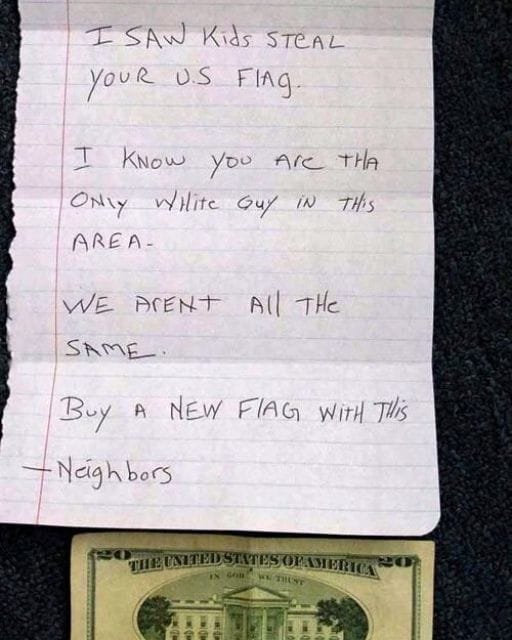 I SAW Kids STEAL
YOUR U.S FlAg.
I KNOW you Are tHA
ONly WHite Guy iN THis
AREA-
WE ArENt All THe
SAME.
Buy A NEW FlAG WitH THis
-Neighbors
20 THE UNITED STATES OF AMERICA 20
IN GOD WE TRUST